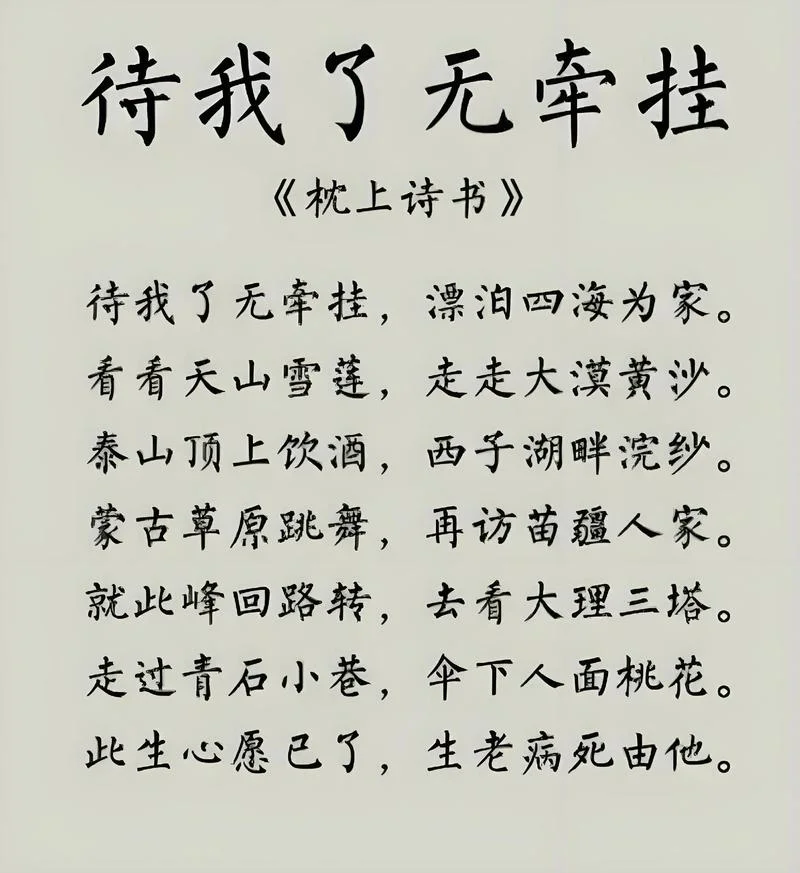 待我了无牵挂
《枕上诗书》
待我了无牵挂，漂泊四海为家。
看看天山雪莲，走走大漠黄沙。
泰山顶上饮酒，西子湖畔浣纱。
蒙古草原跳舞，再访苗疆人家。
就此峰回路转，去看大理三塔。
走过青石小巷，伞下人面桃花。
此生心愿已了，生老病死由他。